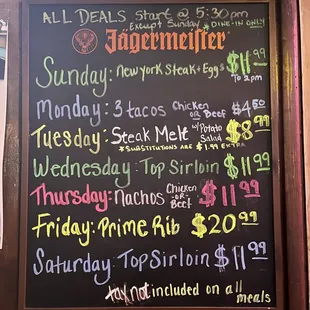 ALL DEALS Start @ 5:30pm
Except Sunday & DINE-IN ONLY
Jägermeister
Sunday: New York Steak + Eggs $11.99
To 2pm
Monday: 3 tacos Chicken OR Beef $4.50
Tuesday: Steak Melt w/ Potato Salad $8.99
*SUBSTITUTIONS ARE $1.99 EXTRA
Wednesday: Top Sirloin $11.99
Thursday: Nachos Chicken -OR- Beef $11.99
Friday: Prime Rib $20.99
Saturday: Top Sirloin $11.99
tax not included on all
meals